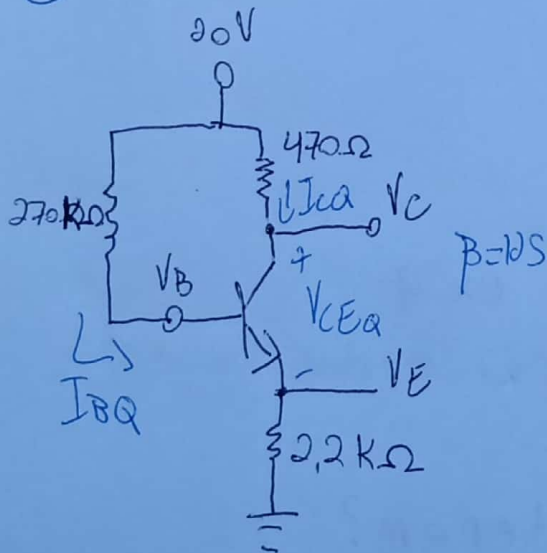 20V
470Ω
270KΩ
ICQ
VC
VB
+
VCEQ
-
IBQ
VE
2,2KΩ